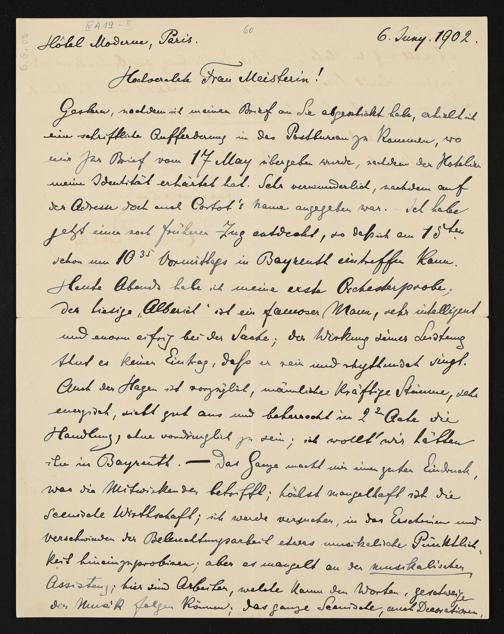 IV A 19 - I
60
Hôtel Moderne, Paris. 6. Juny. 1902.
Hochverehrte Frau Meisterin!
Gestern, nachdem ich meinen Brief an Sie abgeschickt habe, erhielt ich
eine schriftliche Aufforderung in das Postbureau zu kommen, wo
mir Ihr Brief vom 17 May übergeben wurde, nachdem der Hotelier
meine Identität erhärtet hat. Sehr verwunderlich, nachdem auf
der Adresse doch auch Cortot's Name angegeben war. – Ich habe
jetzt einen noch früheren Zug entdeckt, so daß ich am 15ten
schon um 10 35 Vormittags in Bayreuth eintreffen kann.
Heute Abends habe ich meine erste Orchesterprobe;
der hiesige „Alberich" ist ein famoser Mann, sehr intelligent
und enorm eifrig bei der Sache; der Wirkung seiner Leistung
thut es keinen Eintrag, daß er rein und rhythmisch singt.
Auch der Hagen ist vorzüglich, männliche kräftige Stimme, sehr
energisch, sieht gut aus und beherrscht im 2ten Acte die
Handlung, ohne vordringlich zu sein; ich wollt' wir hätten
ihn in Bayreuth. — Das Ganze macht mir einen guten Eindruck,
was die Mitwirkenden betrifft; höchst mangelhaft ist die
scenische Wirthschaft; ich werde versuchen, in das Erscheinen und
Verschwinden der Beleuchtungsarbeit etwas musikalische Pünktlich-
keit hineinzuprobiren; aber es mangelt an der musikalischen
Assistenz; hier sind Arbeiter, welche kaum den Worten, geschweige
der Musik folgen können; das ganze Scenische, auch Decorationen,